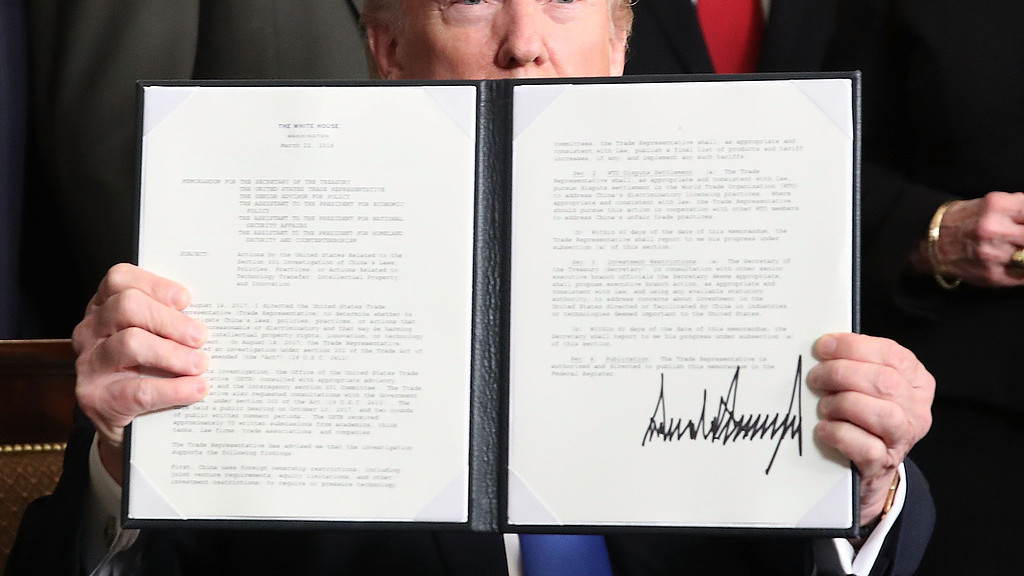 THE WHITE HOUSE
WASHINGTON
March 22, 2018
MEMORANDUM FOR THE SECRETARY OF THE TREASURY
THE UNITED STATES TRADE REPRESENTATIVE
THE SENIOR ADVISOR FOR POLICY
THE ASSISTANT TO THE PRESIDENT FOR ECONOMIC
POLICY
THE ASSISTANT TO THE PRESIDENT FOR NATIONAL
SECURITY AFFAIRS
THE ASSISTANT TO THE PRESIDENT FOR HOMELAND
SECURITY AND COUNTERTERRORISM
SUBJECT: Actions by the United States Related to the
Section 301 Investigation of China's Laws,
Policies, Practices, or Actions Related to
Technology Transfer, Intellectual Property,
and Innovation
August 14, 2017, I directed the United States Trade
Representative (Trade Representative) to determine whether to
investigate China's laws, policies, practices, or actions that
unreasonable or discriminatory and that may be harming
intellectual property rights, innovation, or technology
On August 18, 2017, the Trade Representative
an investigation under section 301 of the Trade Act of
amended (the "Act") (19 U.S.C. 2411)
investigation, the Office of the United States Trade
(USTR) consulted with appropriate advisory
and the interagency section 301 Committee. The Trade
also requested consultations with the Government
under section 303 of the Act (19 U.S.C. 2413). The
held a public hearing on October 10, 2017, and two rounds
of public written comment periods. The USTR received
approximately 70 written submissions from academics, think
tanks, law firms, trade associations, and companies.
The Trade Representative has advised me that the investigation
supports the following findings:
First, China uses foreign ownership restrictions, including
joint venture requirements, equity limitations, and other
investment restrictions, to require or pressure technology
2
committees, the Trade Representative shall, as appropriate and
consistent with law, publish a final list of products and tariff
increases, if any, and implement any such tariffs.
Sec. 2. WTO Dispute Settlement. (a) The Trade
Representative shall, as appropriate and consistent with law,
pursue dispute settlement in the World Trade Organization (WTO)
to address China's discriminatory licensing practices. Where
appropriate and consistent with law, the Trade Representative
should pursue this action in cooperation with other WTO members
to address China's unfair trade practices.
(b) Within 60 days of the date of this memorandum, the
Trade Representative shall report to me his progress under
subsection (a) of this section.
Sec. 3. Investment Restrictions. (a) The Secretary of
the Treasury (Secretary), in consultation with other senior
executive branch officials the Secretary deems appropriate,
shall propose executive branch action, as appropriate and
consistent with law, and using any available statutory
authority, to address concerns about investment in the
United States directed or facilitated by China in industries
or technologies deemed important to the United States.
(b) Within 60 days of the date of this memorandum, the
Secretary shall report to me his progress under subsection (a)
of this section.
Sec. 4. Publication. The Trade Representative is
authorized and directed to publish this memorandum in the
Federal Register.